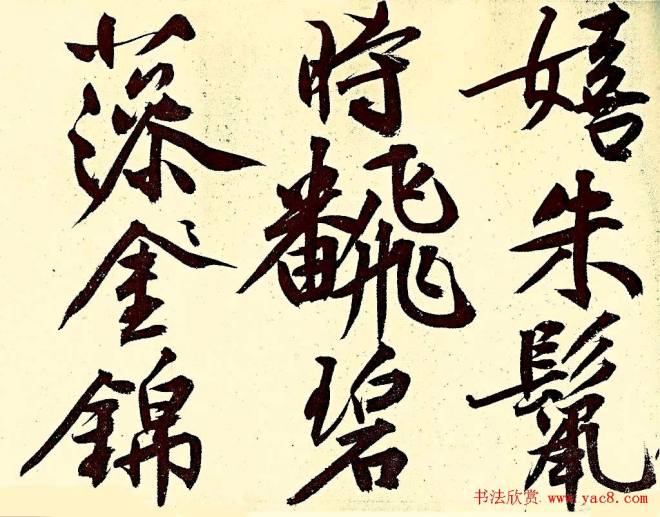 嬉朱鬣
時飜碧
藻金錦
书法欣赏 www.yac8.com